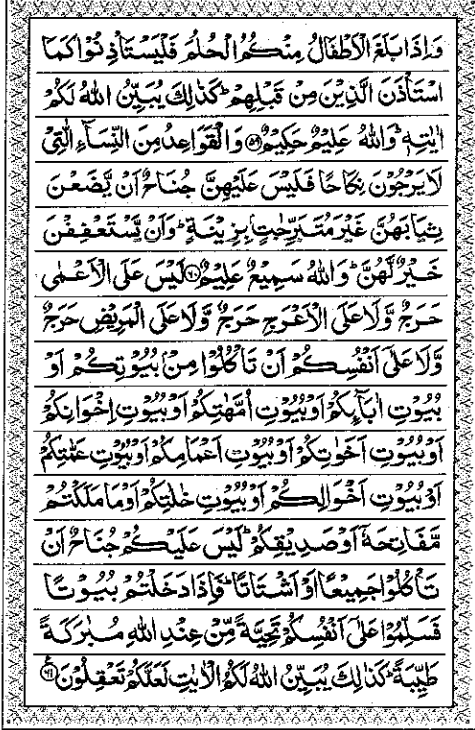 وَاِذَا بَلَغَ الْاَطْفَالُ مِنْكُمُ الْحُلُمَ فَلْيَسْتَاْذِنُوْا كَمَا
اسْتَاْذَنَ الَّذِيْنَ مِنْ قَبْلِهِمْ ؕ كَذٰلِكَ يُبَيِّنُ اللّٰهُ لَكُمْ
اٰيٰتِهٖ ؕ وَاللّٰهُ عَلِيْمٌ حَكِيْمٌ ﴿۵۹﴾ وَالْقَوَاعِدُ مِنَ النِّسَآءِ الّٰتِيْ
لَا يَرْجُوْنَ نِكَاحًا فَلَيْسَ عَلَيْهِنَّ جُنَاحٌ اَنْ يَّضَعْنَ
ثِيَابَهُنَّ غَيْرَ مُتَبَرِّجٰتٍۭ بِزِيْنَةٍ ؕ وَاَنْ يَّسْتَعْفِفْنَ
خَيْرٌ لَّهُنَّ ؕ وَاللّٰهُ سَمِيْعٌ عَلِيْمٌ ﴿۶۰﴾ لَيْسَ عَلَى الْاَعْمٰى
حَرَجٌ وَّلَا عَلَى الْاَعْرَجِ حَرَجٌ وَّلَا عَلَى الْمَرِيْضِ حَرَجٌ
وَّلَا عَلٰٓى اَنْفُسِكُمْ اَنْ تَاْكُلُوْا مِنْۢ بُيُوْتِكُمْ اَوْ
بُيُوْتِ اٰبَآئِكُمْ اَوْ بُيُوْتِ اُمَّهٰتِكُمْ اَوْ بُيُوْتِ اِخْوَانِكُمْ
اَوْ بُيُوْتِ اَخَوٰتِكُمْ اَوْ بُيُوْتِ اَعْمَامِكُمْ اَوْ بُيُوْتِ عَمّٰتِكُمْ
اَوْ بُيُوْتِ اَخْوَالِكُمْ اَوْ بُيُوْتِ خٰلٰتِكُمْ اَوْ مَا مَلَكْتُمْ
مَّفَاتِحَهٗۤ اَوْ صَدِيْقِكُمْ ؕ لَيْسَ عَلَيْكُمْ جُنَاحٌ اَنْ
تَاْكُلُوْا جَمِيْعًا اَوْ اَشْتَاتًا ؕ فَاِذَا دَخَلْتُمْ بُيُوْتًا
فَسَلِّمُوْا عَلٰٓى اَنْفُسِكُمْ تَحِيَّةً مِّنْ عِنْدِ اللّٰهِ مُبٰرَكَةً
طَيِّبَةً ؕ كَذٰلِكَ يُبَيِّنُ اللّٰهُ لَكُمُ الْاٰيٰتِ لَعَلَّكُمْ تَعْقِلُوْنَ ﴿۶۱﴾